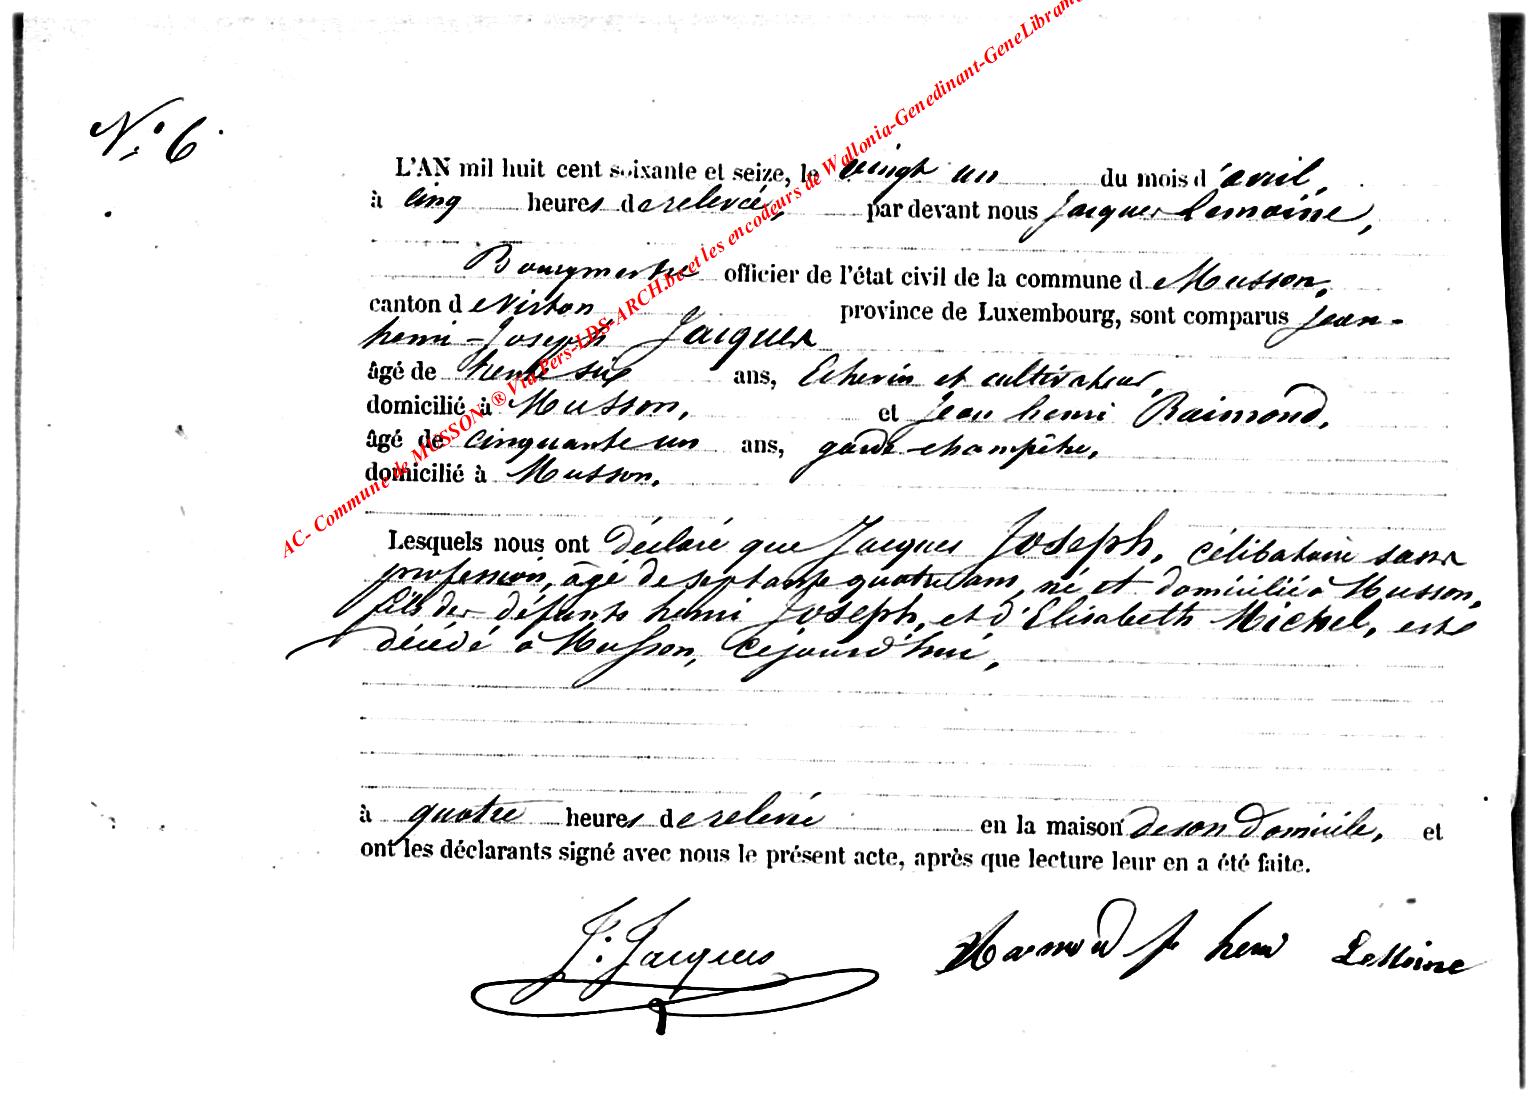 N° 6.
L'AN mil huit cent soixante et seize, le vingt un du mois d'avril,
à cinq heures de relevée, par devant nous Jacques Lemoine,
Bourgmestre officier de l'état civil de la commune de Musson,
canton de Virton province de Luxembourg, sont comparus Jean-
henri-Joseph Jacques
âgé de trente six ans, Echevin et cultivateur,
domicilié à Musson, et Jean henri Raimond,
âgé de cinquante un ans, garde-champêtre,
domicilié à Musson.
Lesquels nous ont déclaré que Jacques Joseph, célibataire sans
profession, âgé de septante quatre ans, né et domicilié à Musson,
fils des défunts henri Joseph, et d'Elisabeth Michel, est
décédé à Musson, cejourd'hui,
à quatre heures de relevée en la maison de son domicile, et
ont les déclarants signé avec nous le présent acte, après que lecture leur en a été faite.
J. Jacques Raimond J henri Lemoine
AC- Commune de MUSSON ® Via Pers-LDS-ARCH.be et les encodeurs de Wallonia-Genedinant-GeneLibramo